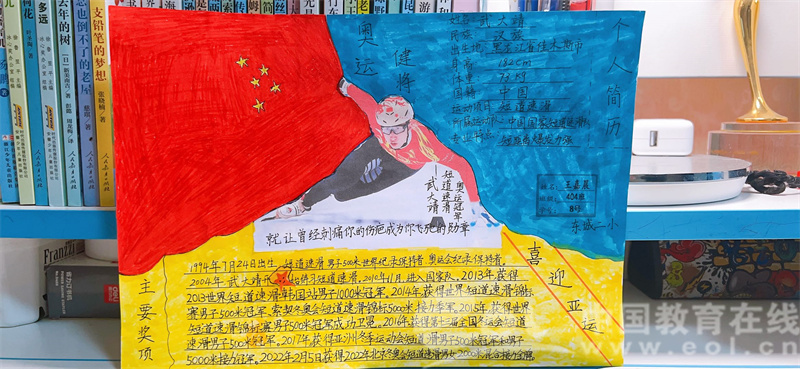 奥运
健将
个人简历
姓名 武大靖
民族 汉族
出生地 黑龙江省佳木斯市
身高 182cm
体重 73kg
国籍 中国
运动项目 短道速滑
所属运动队 中国国家短道速滑队
专业特点 短距离爆发力强
奥运冠军
短道速滑
武大靖
姓名: 王嘉晨
班级: 404班
学号: 8号
东城一小
就让曾经刺痛你的伤疤成为你飞驰的勋章
喜迎亚运
主要奖项
1994年7月24日出生,短道速滑男子500米世界纪录保持者,奥运会纪录保持者。
2004年,武大靖开始练习短道速滑。2010年11月,进入国家队。2013年获得
2013世界短道速滑韩国站男子1000米冠军。2014年,获得世界短道速滑锦标
赛男子500米冠军,索契冬奥会短道速滑锦标5000米接力季军。2015年,获得世界
短道速滑锦标赛男子500米冠军成功卫冕。2016年获得第十三届全国冬运会短道
速滑男子500米冠军。2017年获得亚洲冬季运动会短道速滑男子500米冠军和男子
5000米接力冠军。2022年2月5日获得2022年北京冬奥会短道速滑男女2000米混合接力金牌
支铅笔的梦想
张晓楠/著
人民教育出版社
去年的树
慈琪/著
人民教育出版社
中国教育在线
www.eol.cn